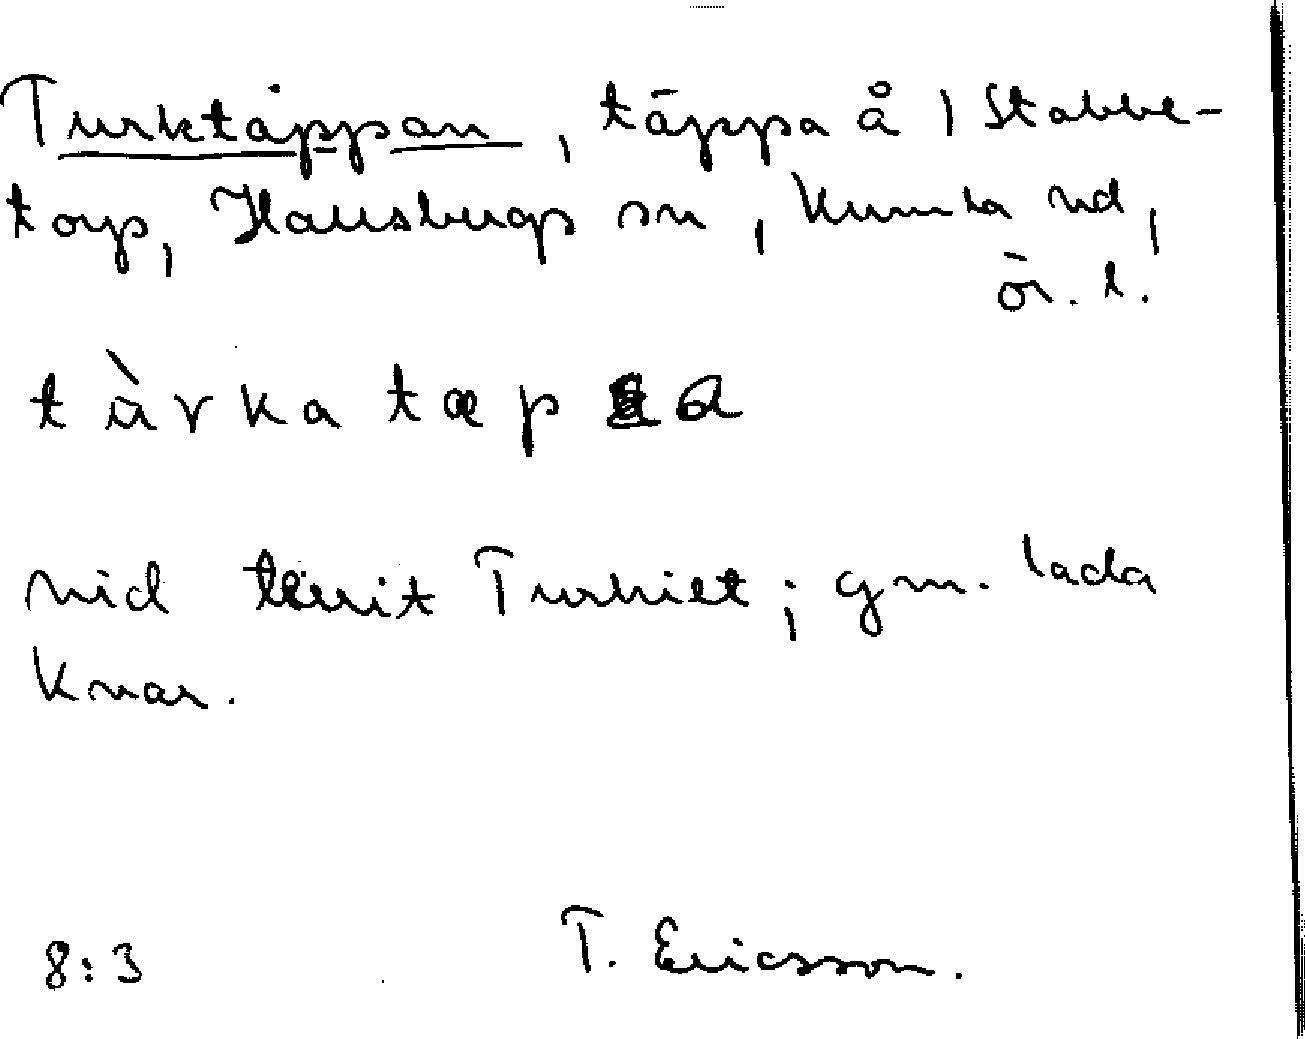 Turktäppan, täppa å 1 Stabbe-
torp, Hallsbergs sn, Kumla hd,
ör. l.
tùrka tæpa
vid tomt Turkiet; gm. lada
kvar.
8:3 T. Ericsson.